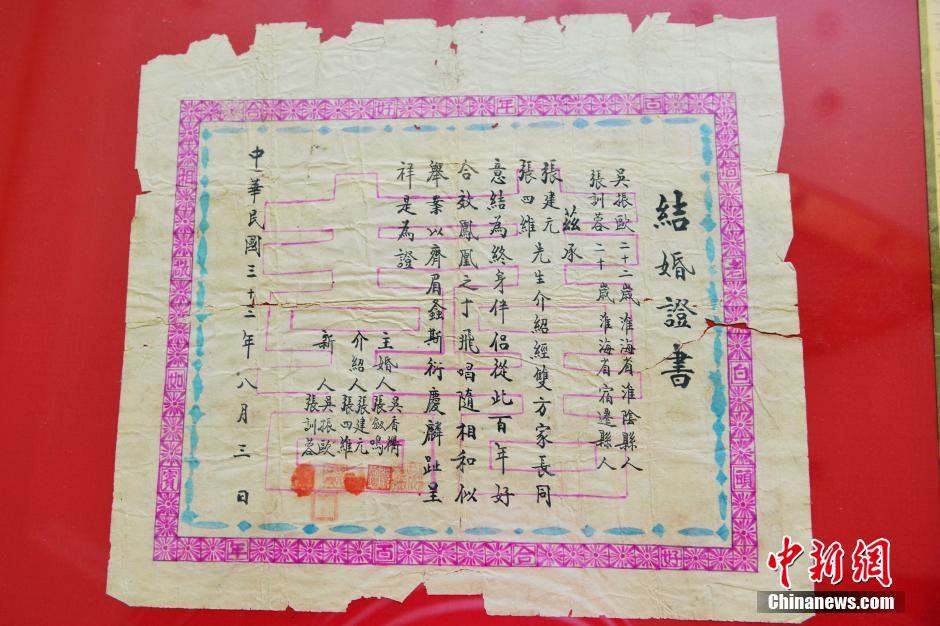 百年好合
偕老白頭
好合百年
相敬如賓
結婚證書
吳振歐二十二歲淮海省淮陰縣人
張訓蓉二十歲淮海省宿遷縣人
茲承
張建元
張四維
先生介紹經雙方家長同
意結為終身伴侶從此百年好
合效鳳凰之于飛唱隨相和似
舉案以齊眉螽斯衍慶麟趾呈
祥是為證
主婚人
吳香衢
張叙鳴
介紹人
張建元
張四維
新人
吳振歐
張訓蓉
中華民國三十二年八月三日
中新網
Chinanews.com